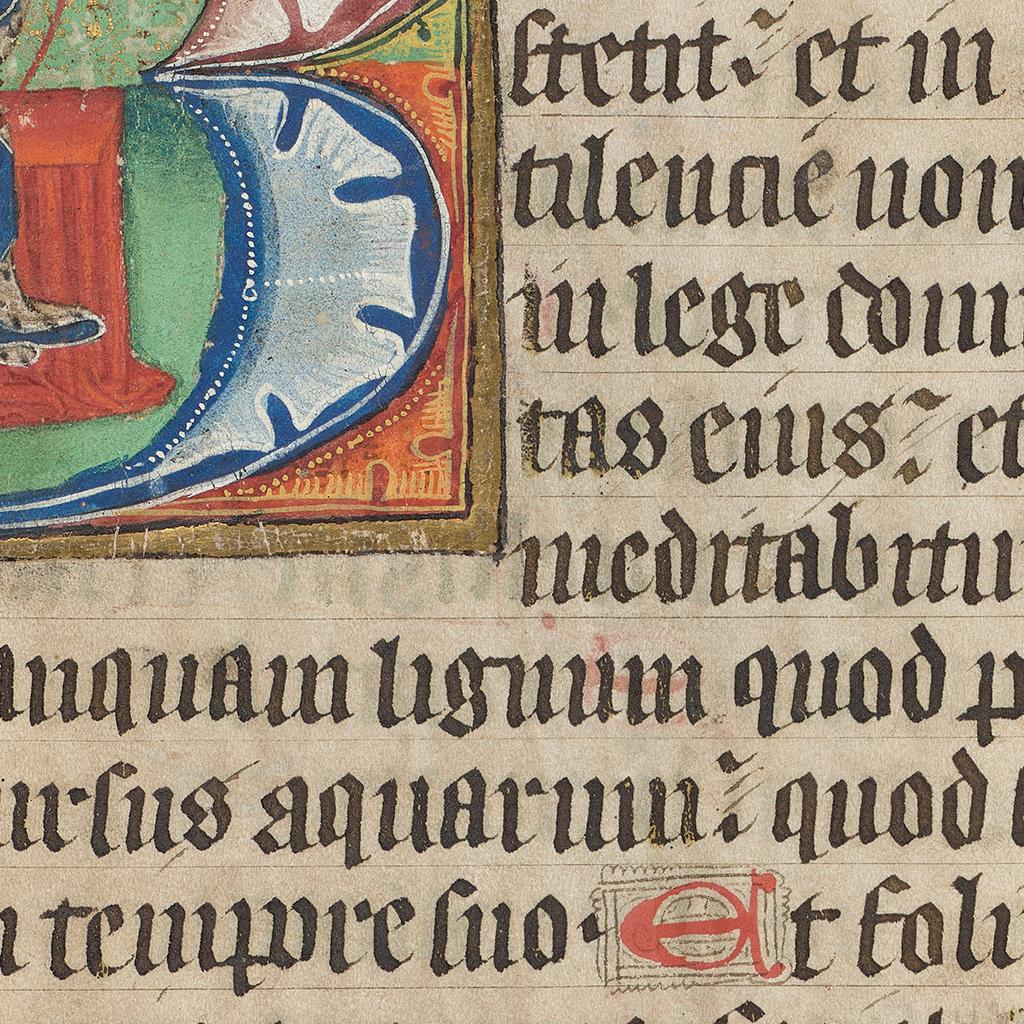 stetit: et in
tilencie non
in lege domi
tas eius: et
meditabitu
anquam lignum quod p
ursus aquarum: quod
tempore suo. Et foli